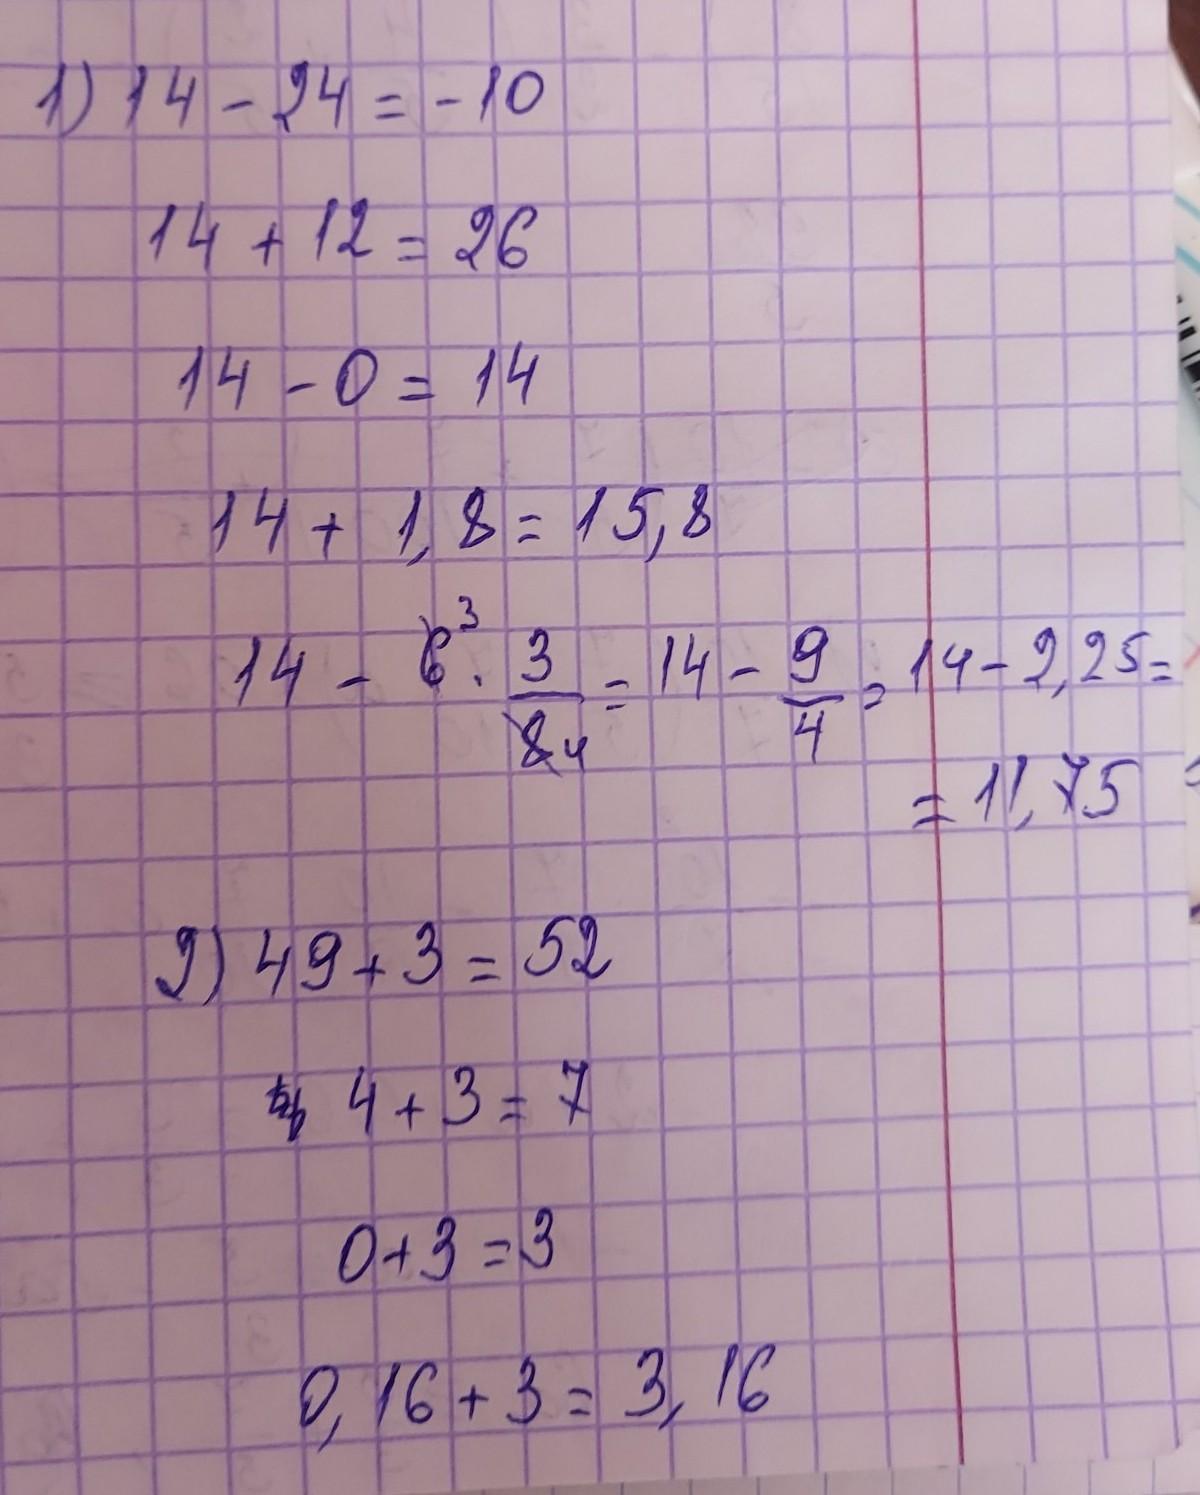 1) 14 - 24 = -10
14 + 12 = 26
14 - 0 = 14
14 + 1,8 = 15,8
14 - 6³ · 3/84 = 14 - 9/4 = 14 - 2,25 =
= 11,75
2) 49 + 3 = 52
4 + 3 = 7
0 + 3 = 3
0,16 + 3 = 3,16